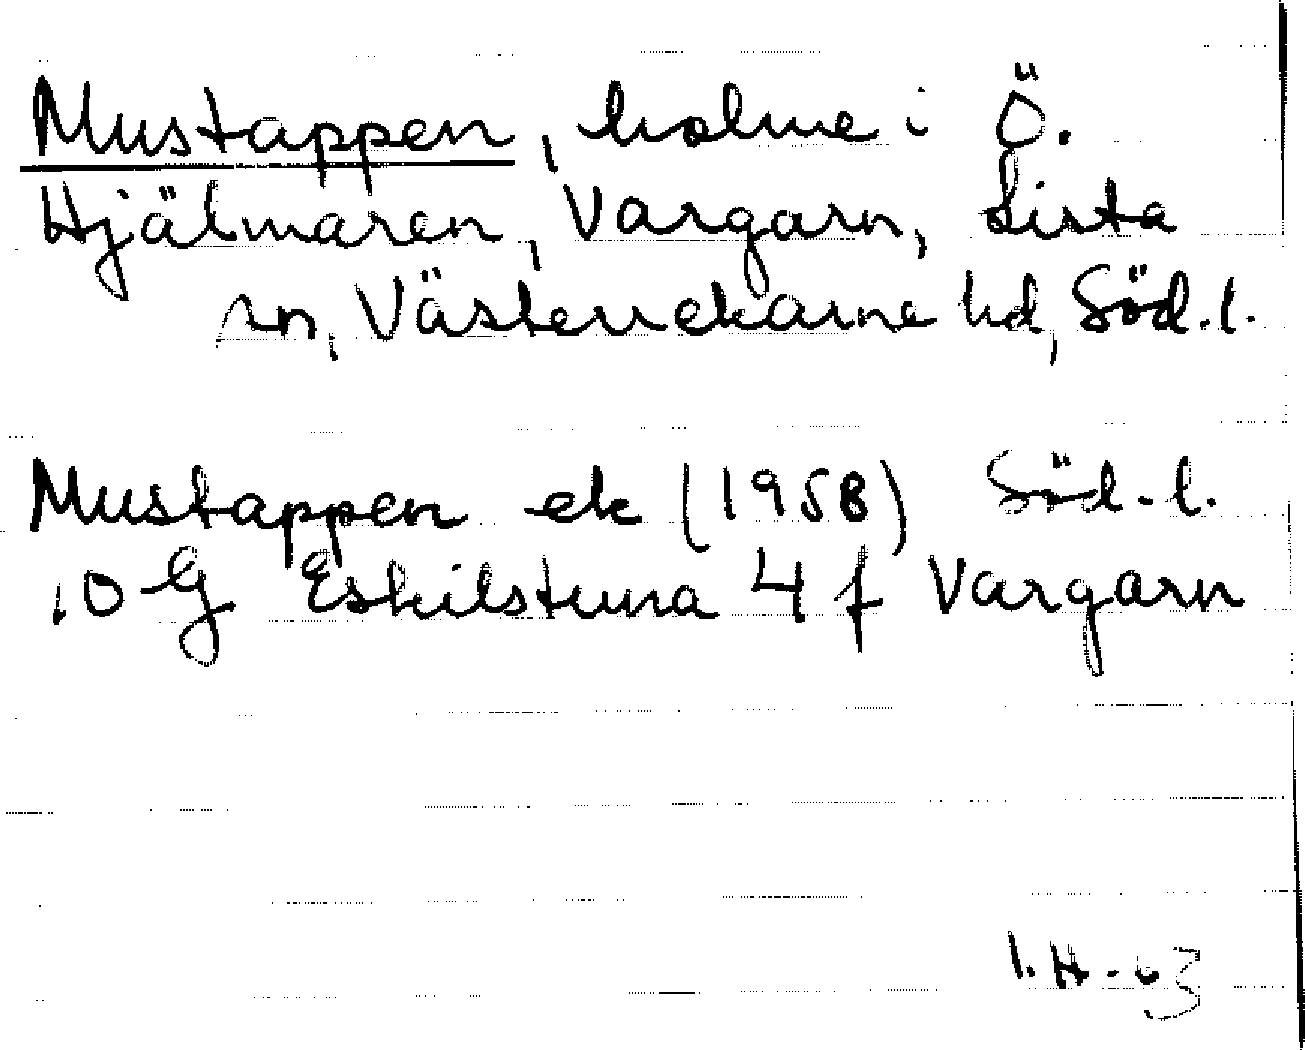 Mustappen, holme i Ö.
Hjälmaren, Vargarn, Lista
sn, Västerrekarne hd, Söd.l.
Mustappen ek (1958) Söd.l.
10 G Eskilstuna 4 f Vargarn
I.H-63